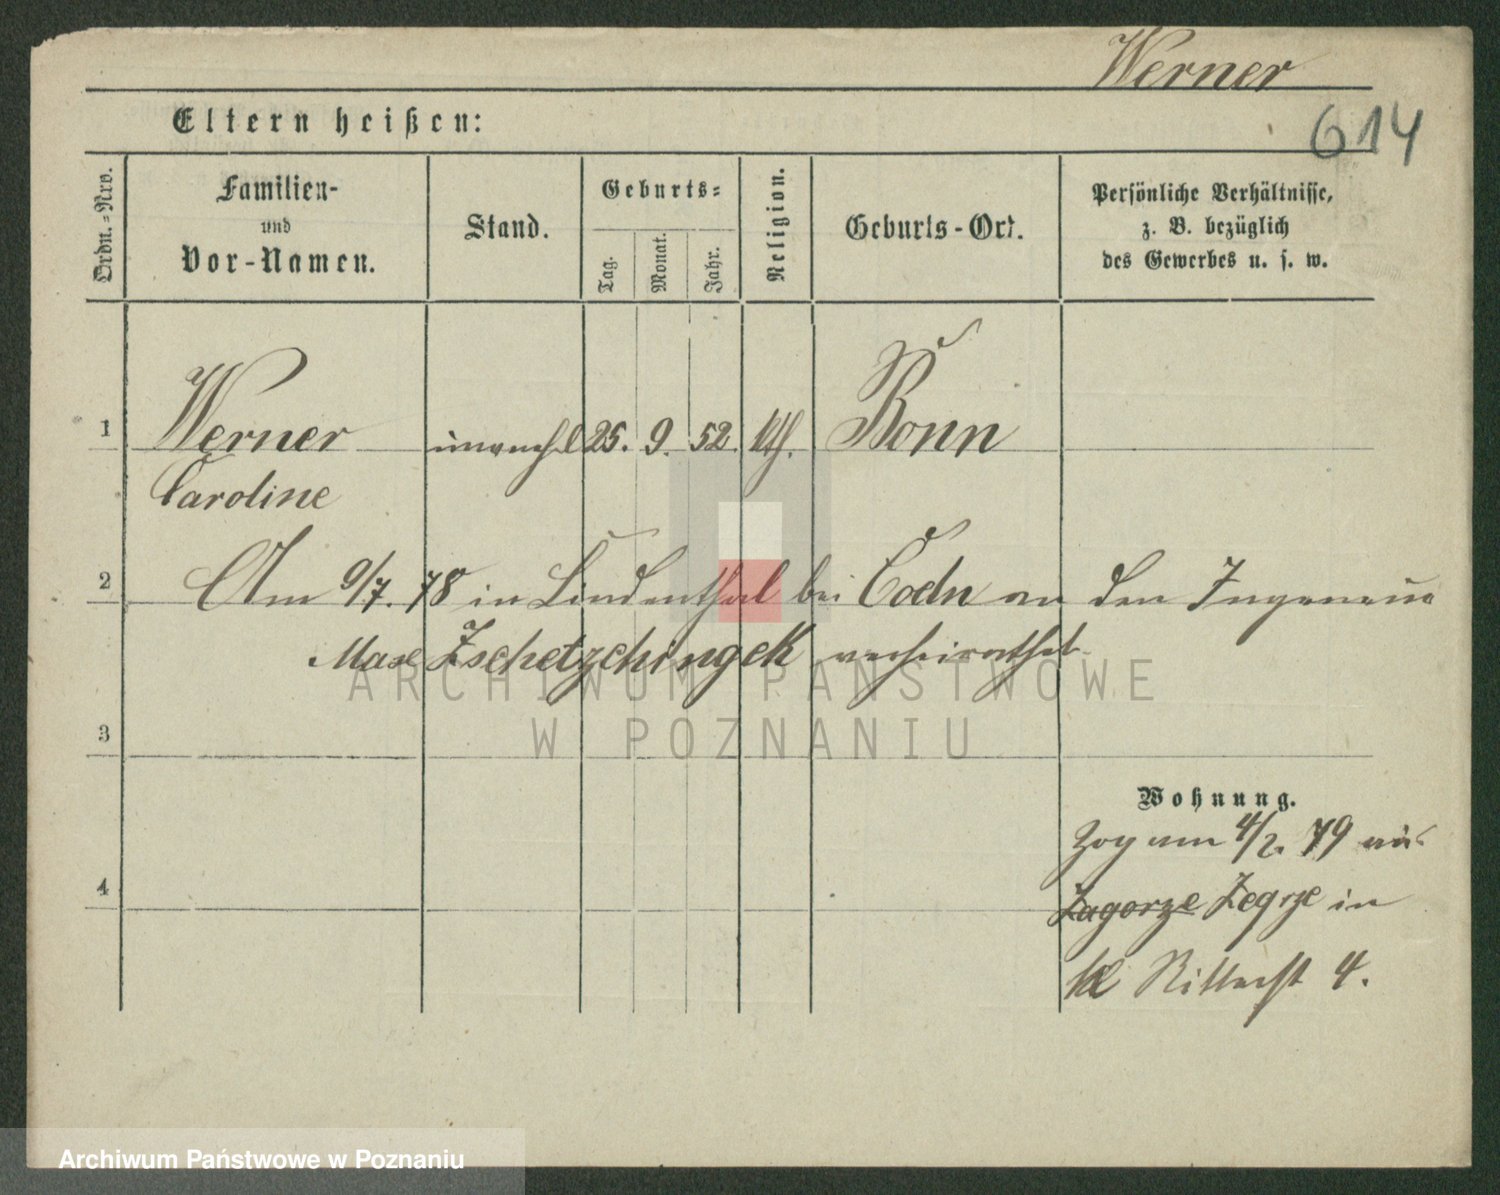 Werner
614
Eltern heißen:
Ordn.-Nro.
Familien-
und
Vor-Namen.
Stand.
Geburts-
Tag.
Monat.
Jahr.
Religion.
Geburts-Ort.
Persönliche Verhältnisse,
z. B. bezüglich
des Gewerbes u. s. w.
1 Werner unverehl 25. 9. 52. kth. Bonn
Caroline
2 Am 9/7. 78 in Lindenthal bei Coeln an den Ingeneur
Max Zschetzchingck verheirathet
3
Wohnung.
Zog am 4/2. 79 aus
4
Zagorze Zegrze in
kl Ritterst 4.
ARCHIWUM PAŃSTWOWE
W POZNANIU
Archiwum Państwowe w Poznaniu